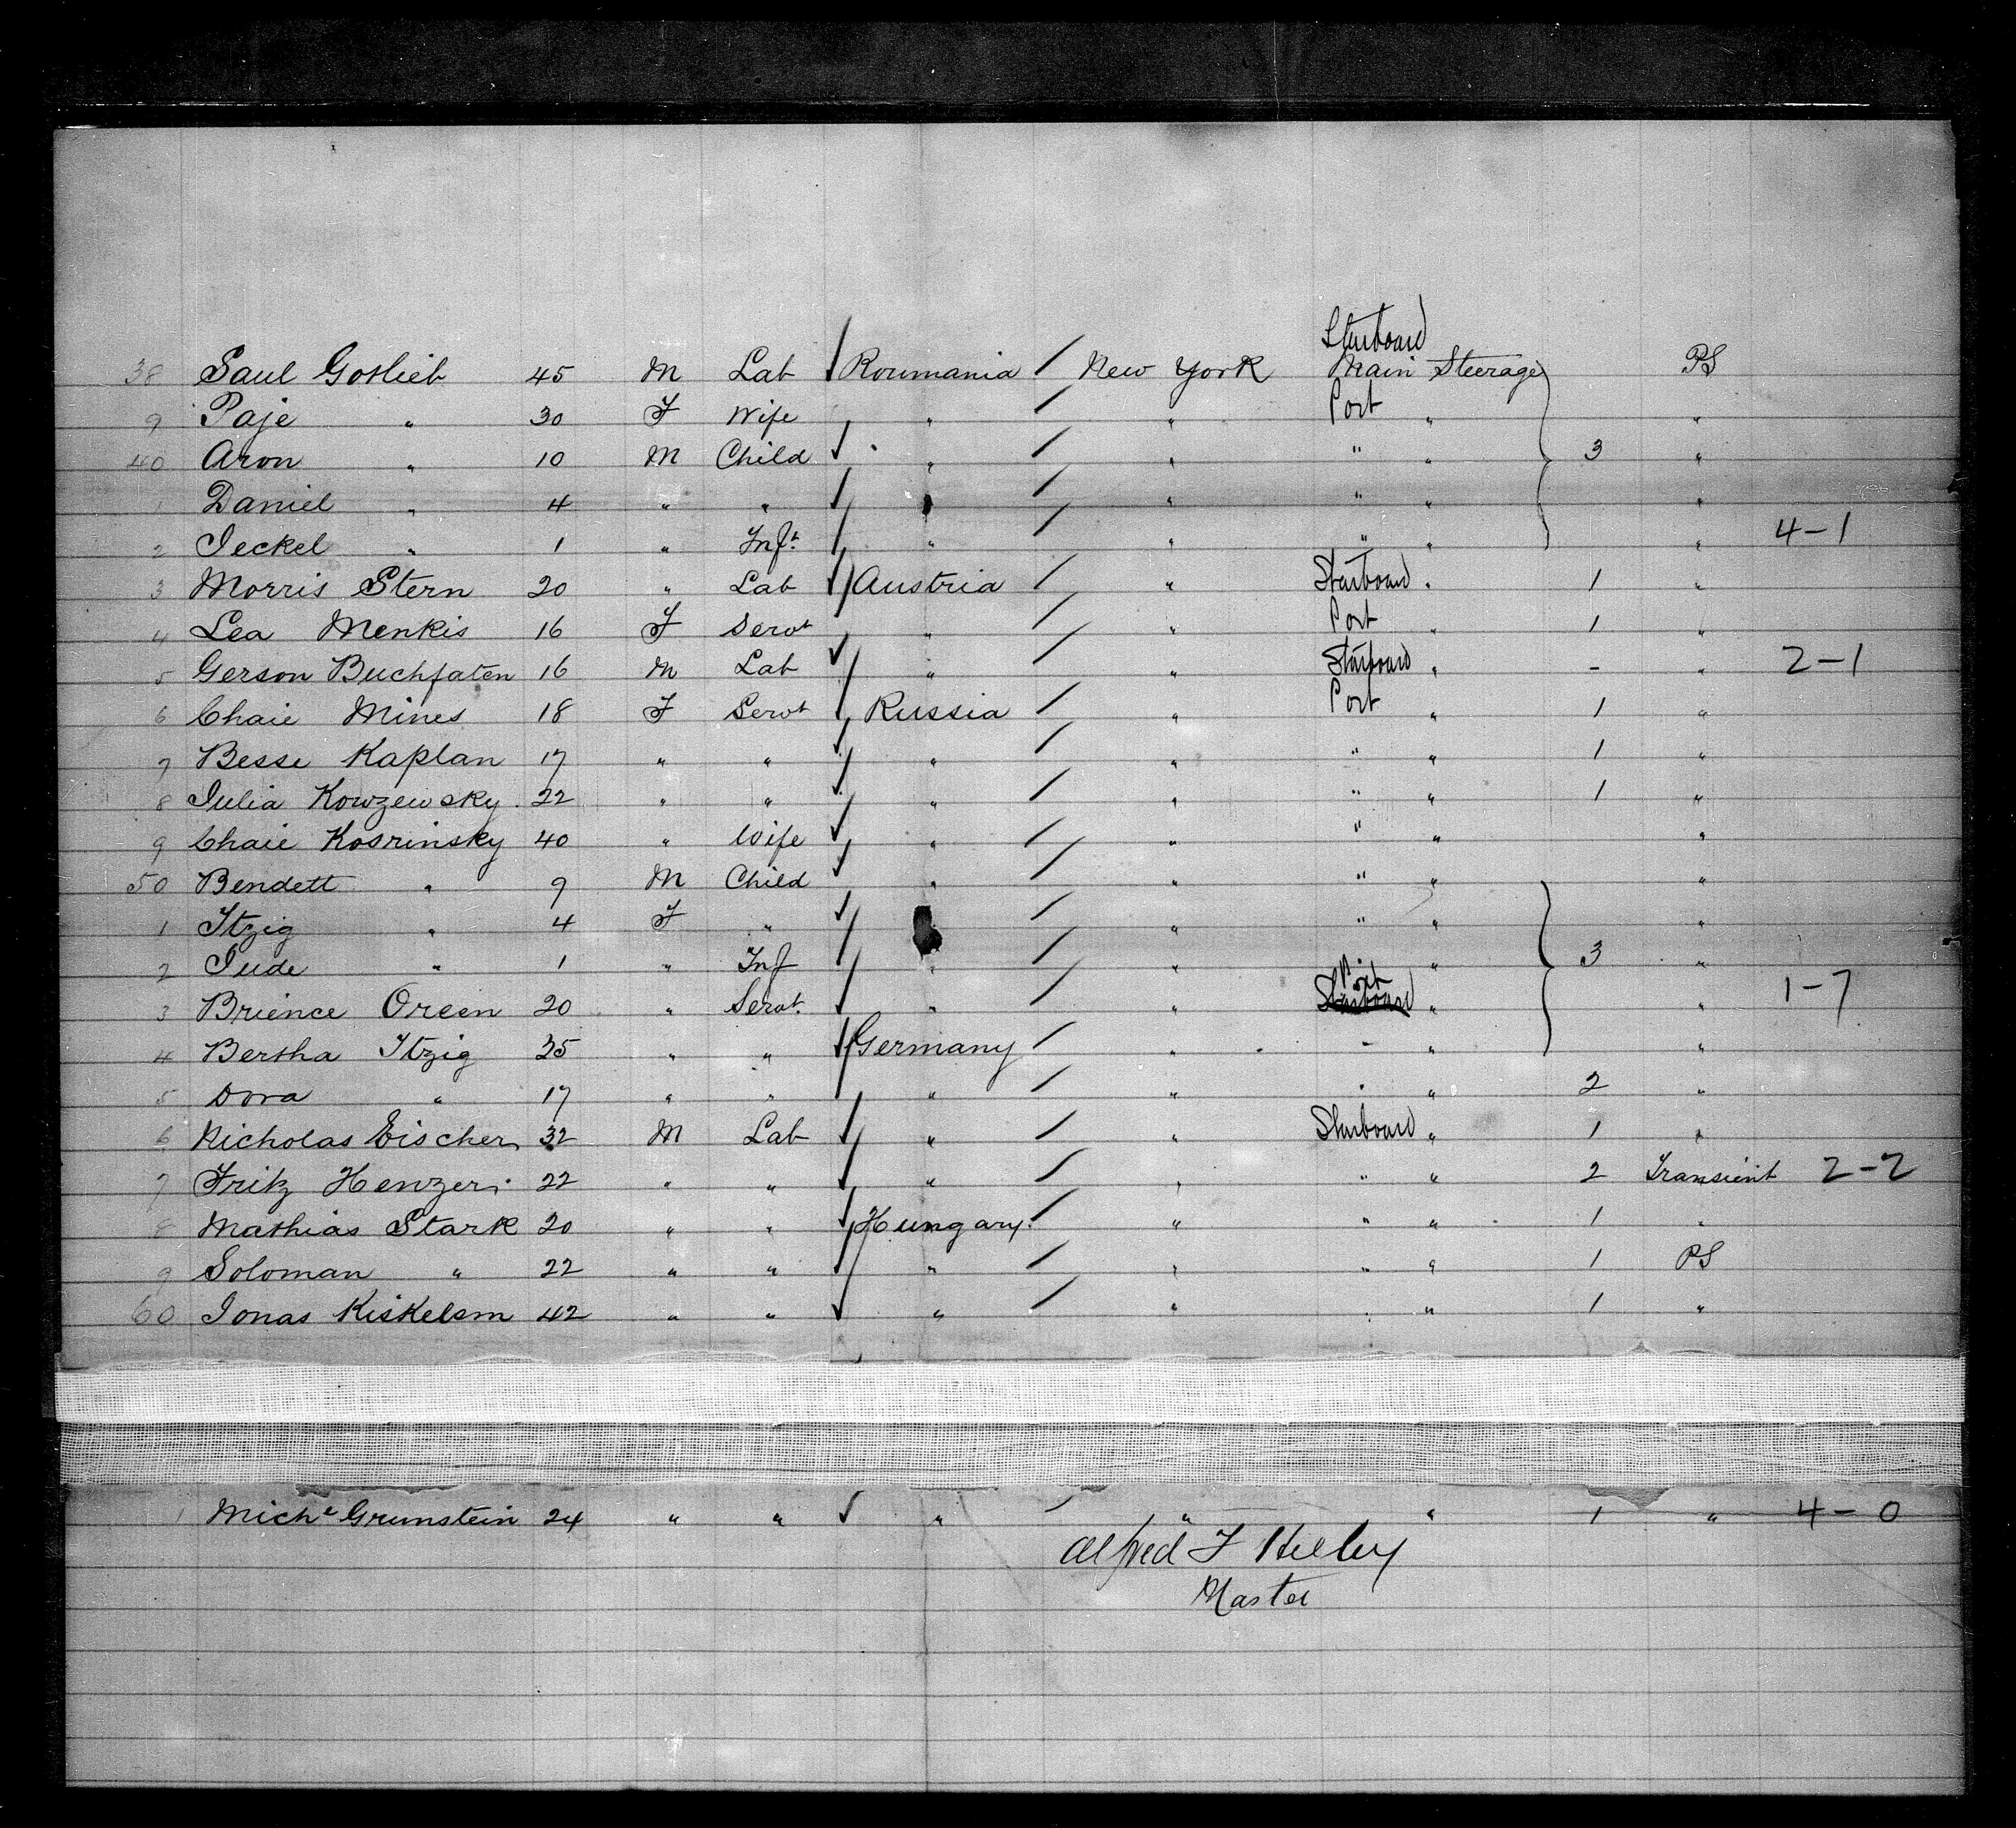 Starboard
38 Saul Gotlieb 45 M Lab Roumania New York Main Steerage PS
9 Paje " 30 F Wife " " Port " "
40 Aron " 10 M Child " " " " 3 "
1 Daniel " 4 " " " " " " "
2 Jeckel " 1 " Inft. " " " " " 4-1
3 Morris Stern 20 " Lab Austria " Starboard " 1 "
4 Lea Menkis 16 F Servt " " Port " 1 "
5 Gerson Buchfaten 16 M Lab " " Starboard " - " 2-1
6 Chaie Mines 18 F Servt Russia " Port " 1 "
7 Besse Kaplan 17 " " " " " " 1 "
8 Julia Kowzewsky 22 " " " " " " 1 "
9 Chaie Kosrinsky 40 " Wife " " " " "
50 Bendett " 9 M Child " " " " "
1 Itzig " 4 F " " " " "
2 Jude " 1 " Inf " " " 3 "
Port
3 Brience Oreen 20 " Servt. " " Starboard " " 1-7
4 Bertha Itzig 35 " " Germany " " " "
5 Dora " 17 " " " " " " 2 "
6 Nicholas Eischer 32 M Lab " " Starboard " 1 "
7 Fritz Henzer 22 " " " " " " 2 Transient 2-2
8 Mathias Stark 20 " " Hungary. " " " 1 "
9 Soloman " 22 " " " " " " 1 PS
60 Jonas Kiskelsm 42 " " " " " " 1 "
1 Miche Grunstein 24 " " " " " 1 " 4-0
Alfred F
Master